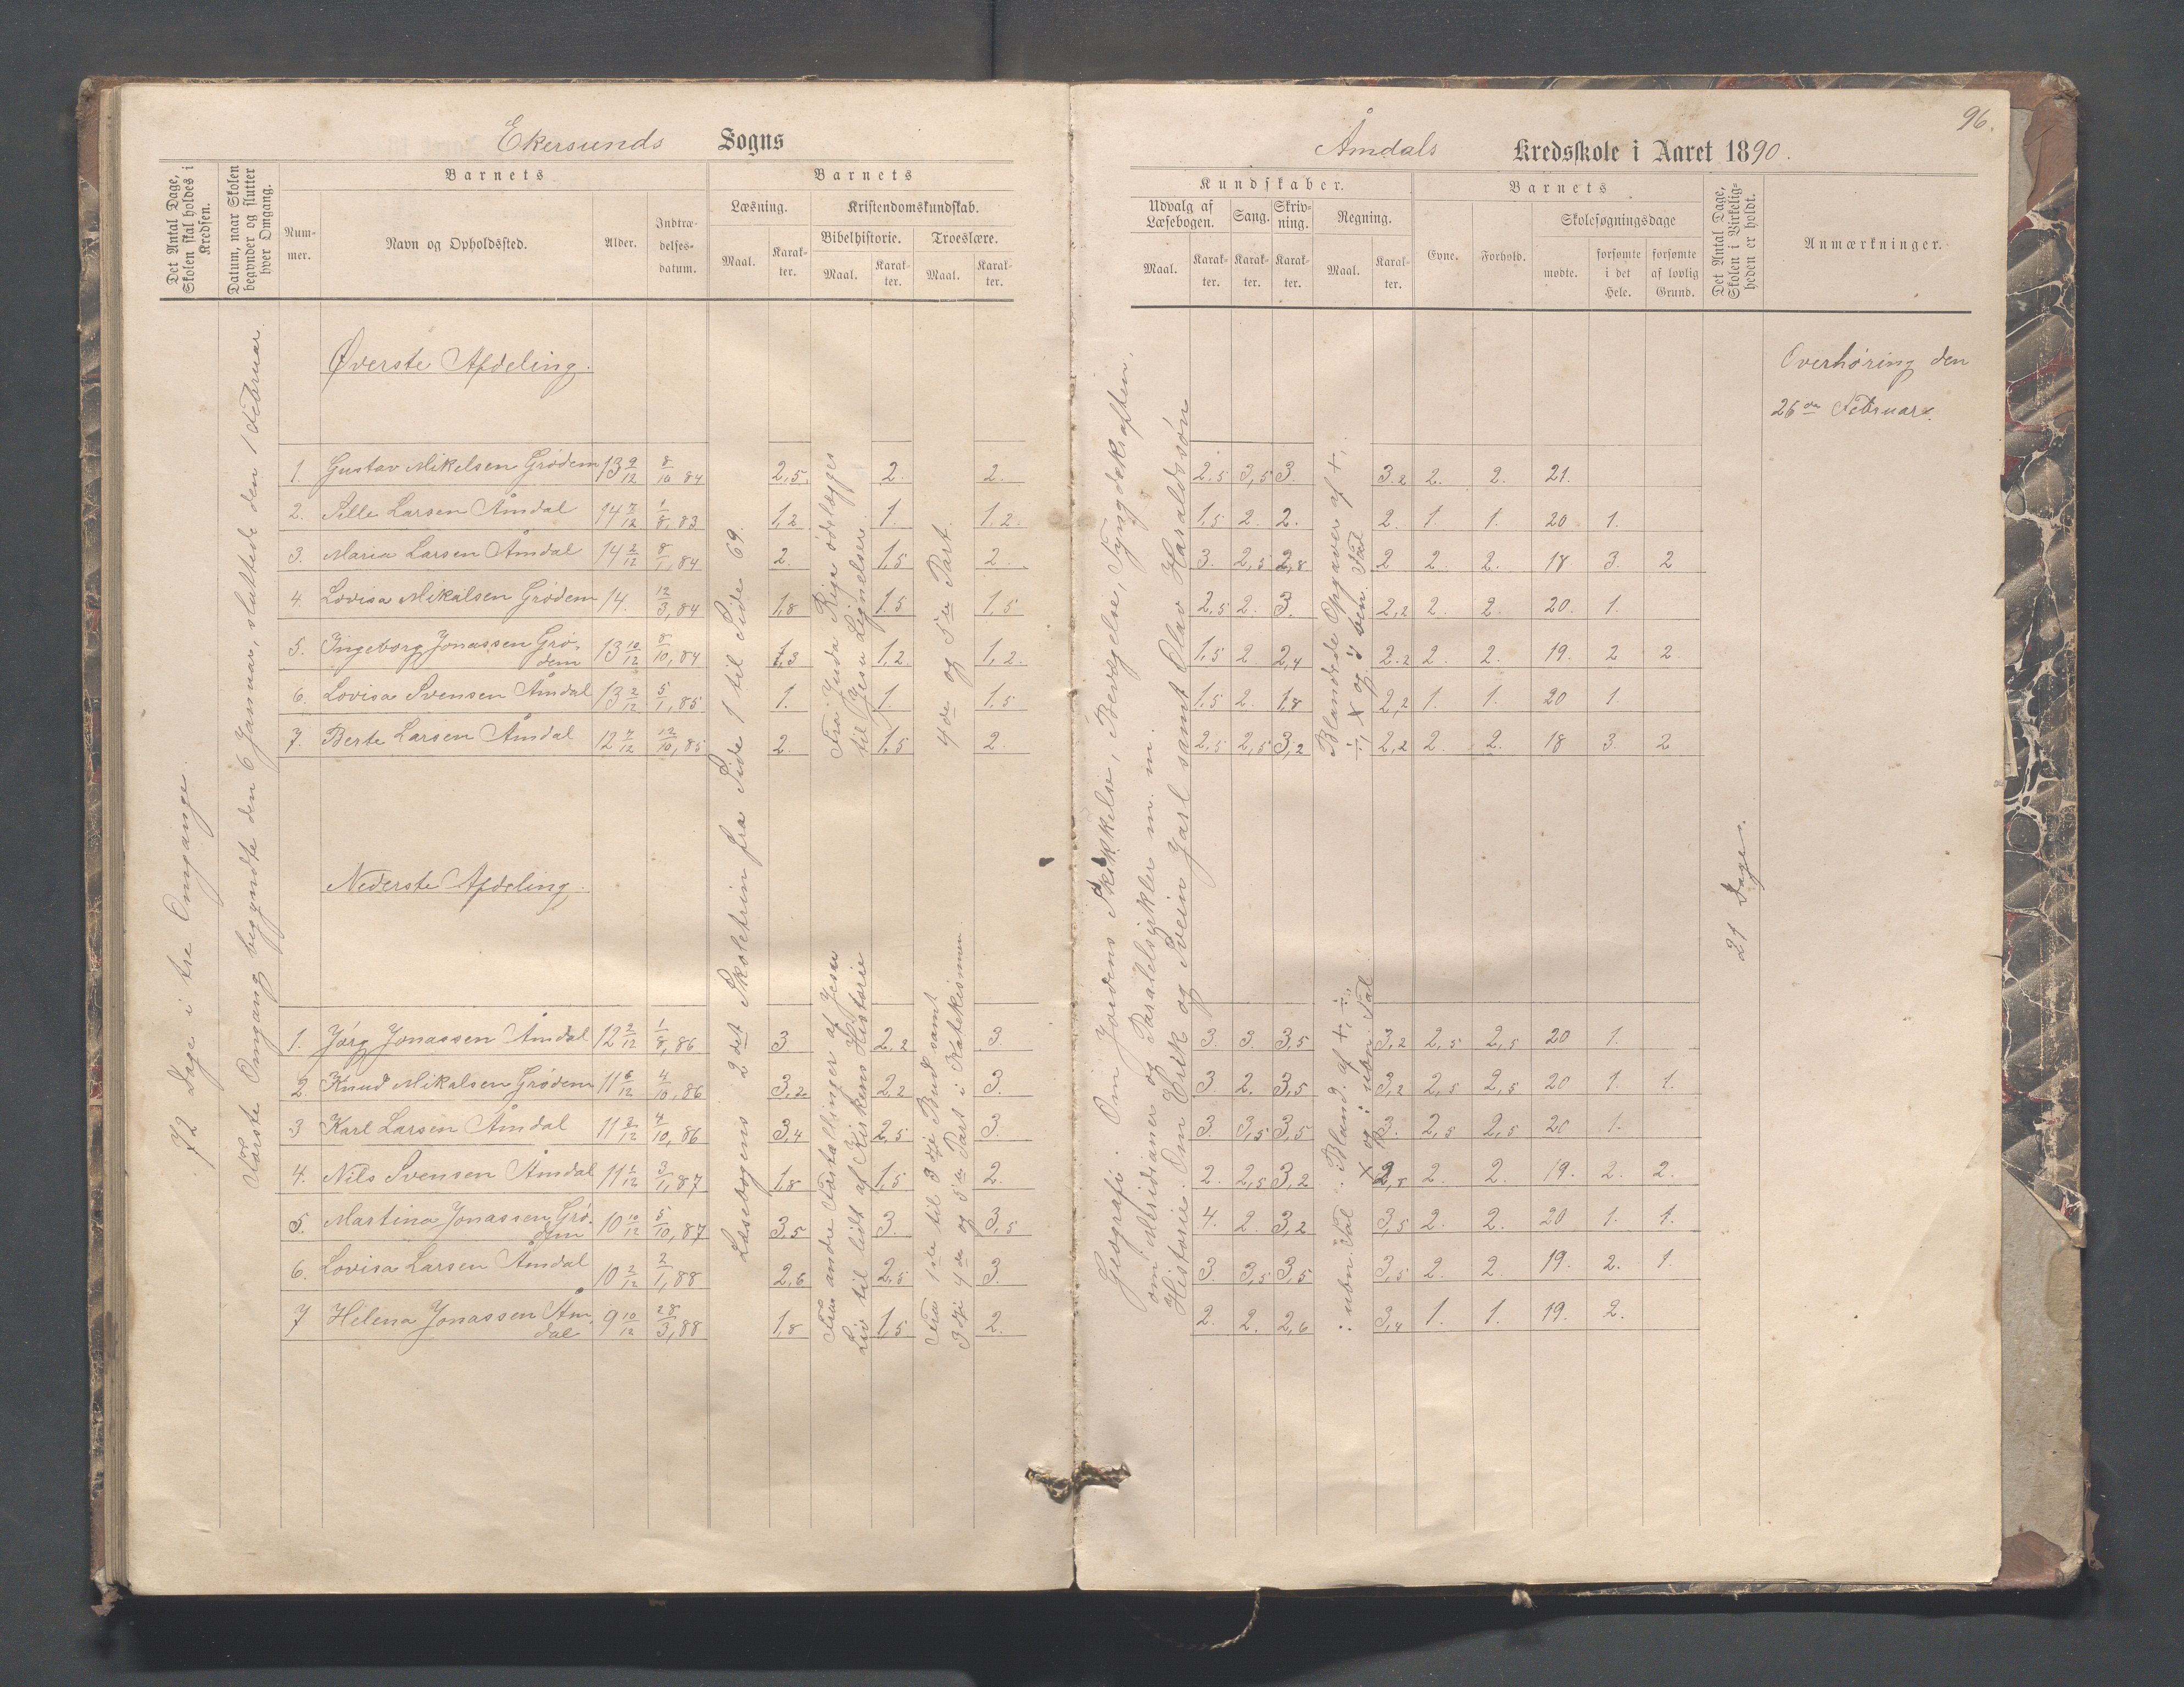 96.
Ekersunds Sogns
Åmdals Kredsskole i Aaret 1890.
Det Antal Dage, Skolen skal holdes i Kredsen.
Datum, naar Skolen begynder og slutter hver Omgang.
Barnets
Nummer.
Navn og Opholdssted.
Alder.
Indtrædelsesdatum.
Barnets
Læsning.
Maal.
Karakter.
Kristendomskundskab.
Bibelhistorie.
Maal.
Karakter.
Troeslære.
Maal.
Karakter.
Kundskaber.
Udvalg af Læsebogen.
Maal.
Karakter.
Sang.
Karakter.
Skrivning.
Karakter.
Regning.
Maal.
Karakter.
Barnets
Evne.
Forhold.
Skolesøgningsdage
mødte.
forsømte i det Hele.
forsømte af lovlig Grund.
Det Antal Dage, Skolen i Virkeligheden er holdt.
Anmærkninger.
72 Dage i tre Omgange.
Første Omgang begyndte den 6 Januar, sluttede den 1 Februar.
Øverste Afdeling.
1. Gustav Mikelsen Grødem 13 9/12 8/10 84 2,5. 2. 2. 2.5 3,5 3. 3.2 2. 2. 21.
2. Sille Larsen Åmdal 14 7/12 1/8, 83 1,2 1. 1,2. 1,5 2. 2. 2. 1. 1. 20 1.
3. Maria Larsen Åmdal 14 2/12 8/1, 84 2. 1,5 2. 3. 2,5 2,8 2 2 2. 18 3. 2
4. Lovisa Mikalsen Grødem 14. 12/3, 84 1,8 1.5 1,5 2,5 2. 3. 2,2 2. 2. 20. 1.
5. Ingeborg Jonassen Grødem 13 10/12 /10, 84 1,3 1,2. 1,2. 1,5 2 2,4 2.2 2. 2. 19. 2 2.
6. Lovisa Svensen Åmdal 13 2/12 5/1, 85. 1. 1. 1,5 1,5 2. 1,8 2,2 1. 1. 20 1.
7. Berte Larsen Åmdal 12 7/12 12/10, 85 2. 1,5 2. 2,5 2,5 3,2 2,2 2. 2. 18 3. 2
Læsebogens 2det Skoletrin fra Side 1 til Side 69.
Fra Juda Rige ødelægges
til Jesu Lignelser.
4de og 5te Part.
Geografi: Om Jordens Skikkelse, Bevægelse, Tyngdekraften,
om Meridianer og Paralelsirkler m. m.
Historie. Om Erik og Svein Jarl samt Olav Haraldssøn
Blandede Opgaver af +,
÷, × og : i ben. Tal
Overhøring den
26de Februar.
21 Dage.
Nederste Afdeling.
1. Jørg Jonassen Åmdal 12 2/12 1/8, 86 3. 2,2 3. 3. 3. 3,5 3,2 2,5 2,5 20 1.
2. Knud Mikalsen Grødem 11 6/12 4/10, 86 3,2. 2,2 3. 3. 2. 3,5 3,2 2,5 2,5 20 1. 1.
3 Karl Larsen Åmdal 11 3/12 4/10, 86 3,4 2,5 3. 3. 3,5 3,5 3. 2,5 2,5 20 1.
4. Nils Svensen Åmdal 11 1/12 3/1, 87 1,8 1,5 2. 2. 2,5 3,2 2,8 2. 2. 19. 2. 2.
5. Martina Jonassen Grødem 10 10/12 5/10, 87 3,5 3. 3,5 4. 2. 3,2 3,5 2. 2. 20 1. 1.
6. Lovisa Larsen Åmdal 10 2/12 2/1, 88 2,6 2.5 3. 3. 3,5 3,5 3,5 2. 2. 19. 2. 1.
7 Helena Jonassen Åmdal 9 10/12 28/3, 88 1,8 1,5 2. 2. 2. 2,6 3,4 1. 1. 19. 2.
Fra andre Fortællinger af Jesu
Liv til lidt af Kirkens Historie
Fra 1ste til 3dje Bud samt
3dje 4de og 5te Part i Katekismen
: ubn. Tal. Bland. af +, ÷,
× og : i ubn. Tal